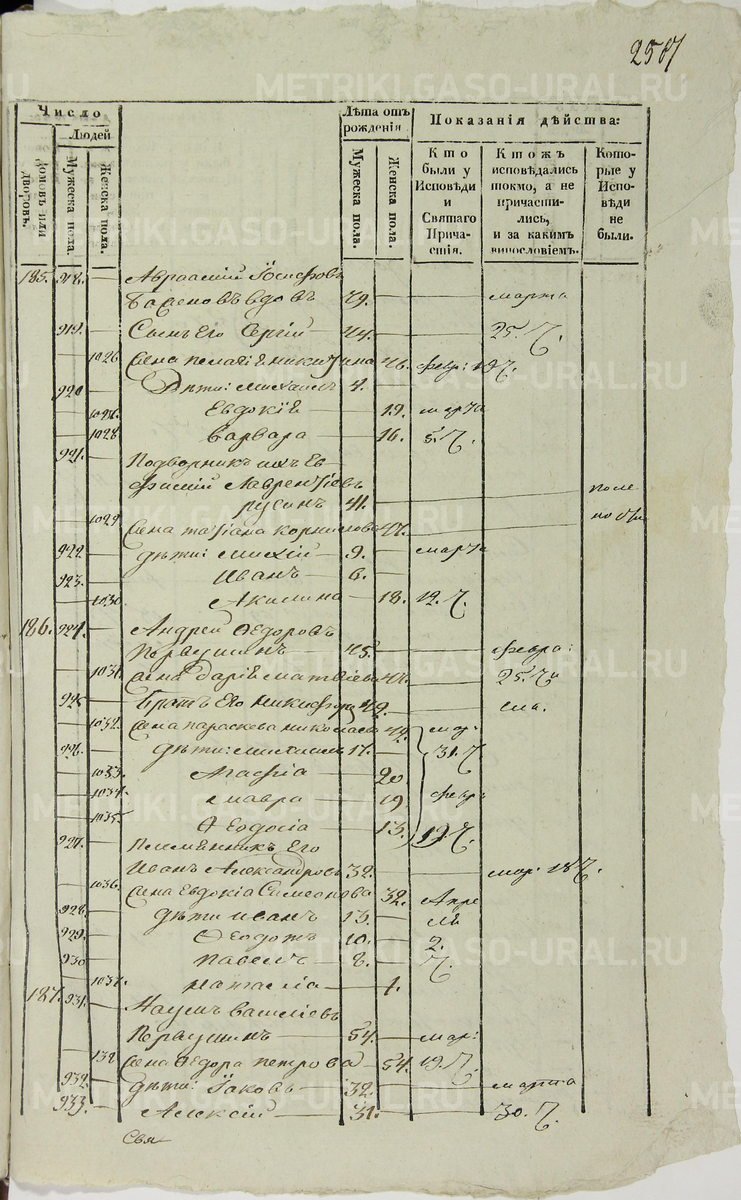 2507
METRIKI.GASO-URAL.RU
Число
Людей
домовъ или дворовъ.
Мужеска пола.
Женска пола.
Лѣта отъ рожденія
Мужеска пола.
Женска пола.
Показанія дѣйства:
Кто были у Исповѣди и Святаго Причастія.
Ктожъ исповѣдались токмо, а не причастились, и за какимъ винословіемъ.
Которые у Исповѣди не были.
185. 918. Авраамій Іосифовъ
вдовъ 79. марта
919. Сынъ Его Сергій 44. 25. Ч.
1026 Жена Пелагіѣ Никитина 46. февр: 19 Ч.
920 Дѣти: Михаилъ 4.
1027. Евдокіѣ 19. марта
1028 Варвара 16. 5. Ч.
921. Подворникъ ихъ Ев
фимій Лаврентіевъ
русинъ 41.
1029 Жена Татіана Корнилова 47.
922. дѣти: Михій 9. марта
923. Иванъ 6.
1030. Акилина 18. 12. Ч.
186. 924. Андрей Ѳедоровъ
Первушинъ 45. февра:
1031. Жена Даріѣ Матвіева 25. Ч.
925 Братъ Его Никифоръ 49.
1032. Жена Параскева Николаева 49. мар:
926. дѣти: Михаилъ 17. 31. Ч.
1033. Агафіа 20
1034. Мавра 19 февр
1035. Ѳеодосіа 13. 19. Ч.
927. Племянникъ Его
Иванъ Александровъ 32. мар: 18 Ч.
1036. Жена Евдокіа Симеонова 32. Апре
928. дѣти Иванъ 13. ля
929. Ѳеодотъ 10. 2.
930 Павелъ 8. Ч.
1037. Наталіа 1.
187. 931. Наумъ Василіевъ
Первушинъ 54. мар:
138 Жена Ѳедора Петрова 54. 19. Ч.
932. дѣти: Іаковъ 32. марта
933. Алексій 31. 30. Ч.
Свя